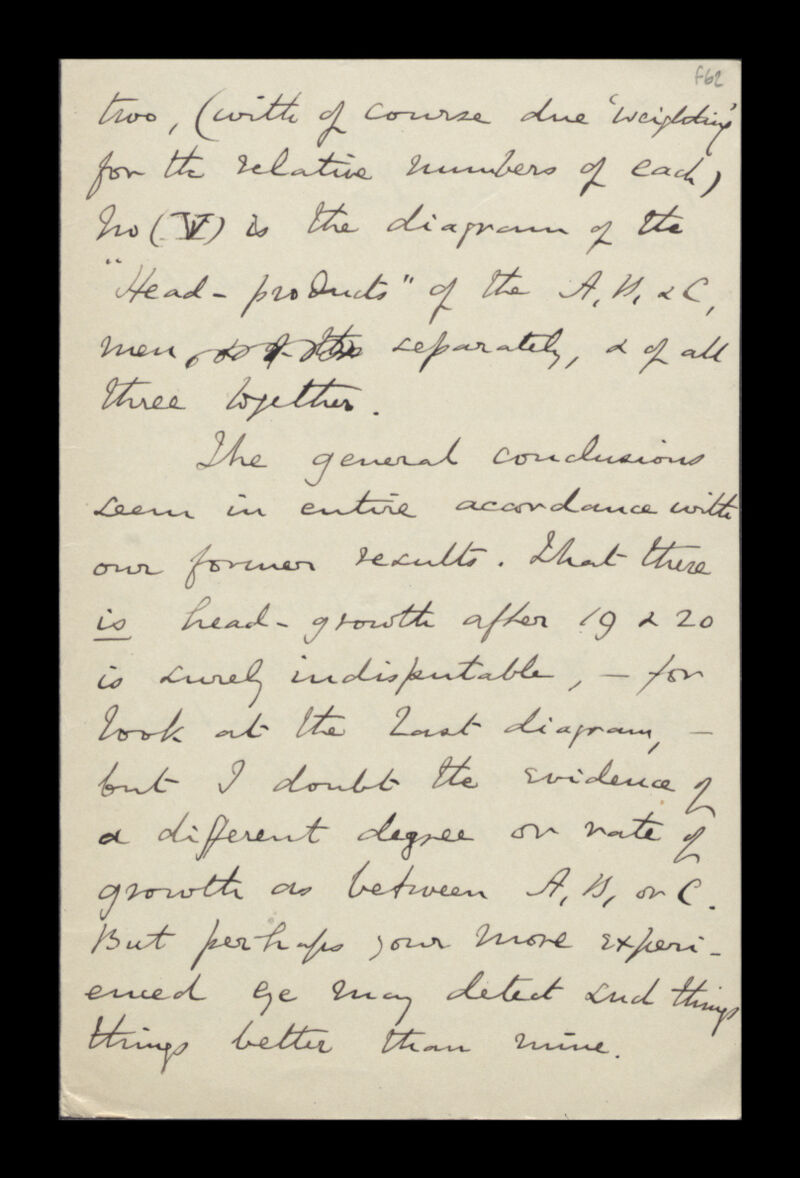 f62
two, (with of course due 'weighting'
for the relative numbers of each)
No (IV) is the diagram of the
"Head-products" of the A, B, & C,
men, separately, & of all
three together.
The general conclusions
seem in entire accordance with
our former results. That there
is head-growth after 19 & 20
is surely indisputable, – for
look at the last diagram, –
but I doubt the evidence of
a different degree or rate of
growth as between A, B, or C.
But perhaps your more experi-
enced eye may detect such things
things better than mine.